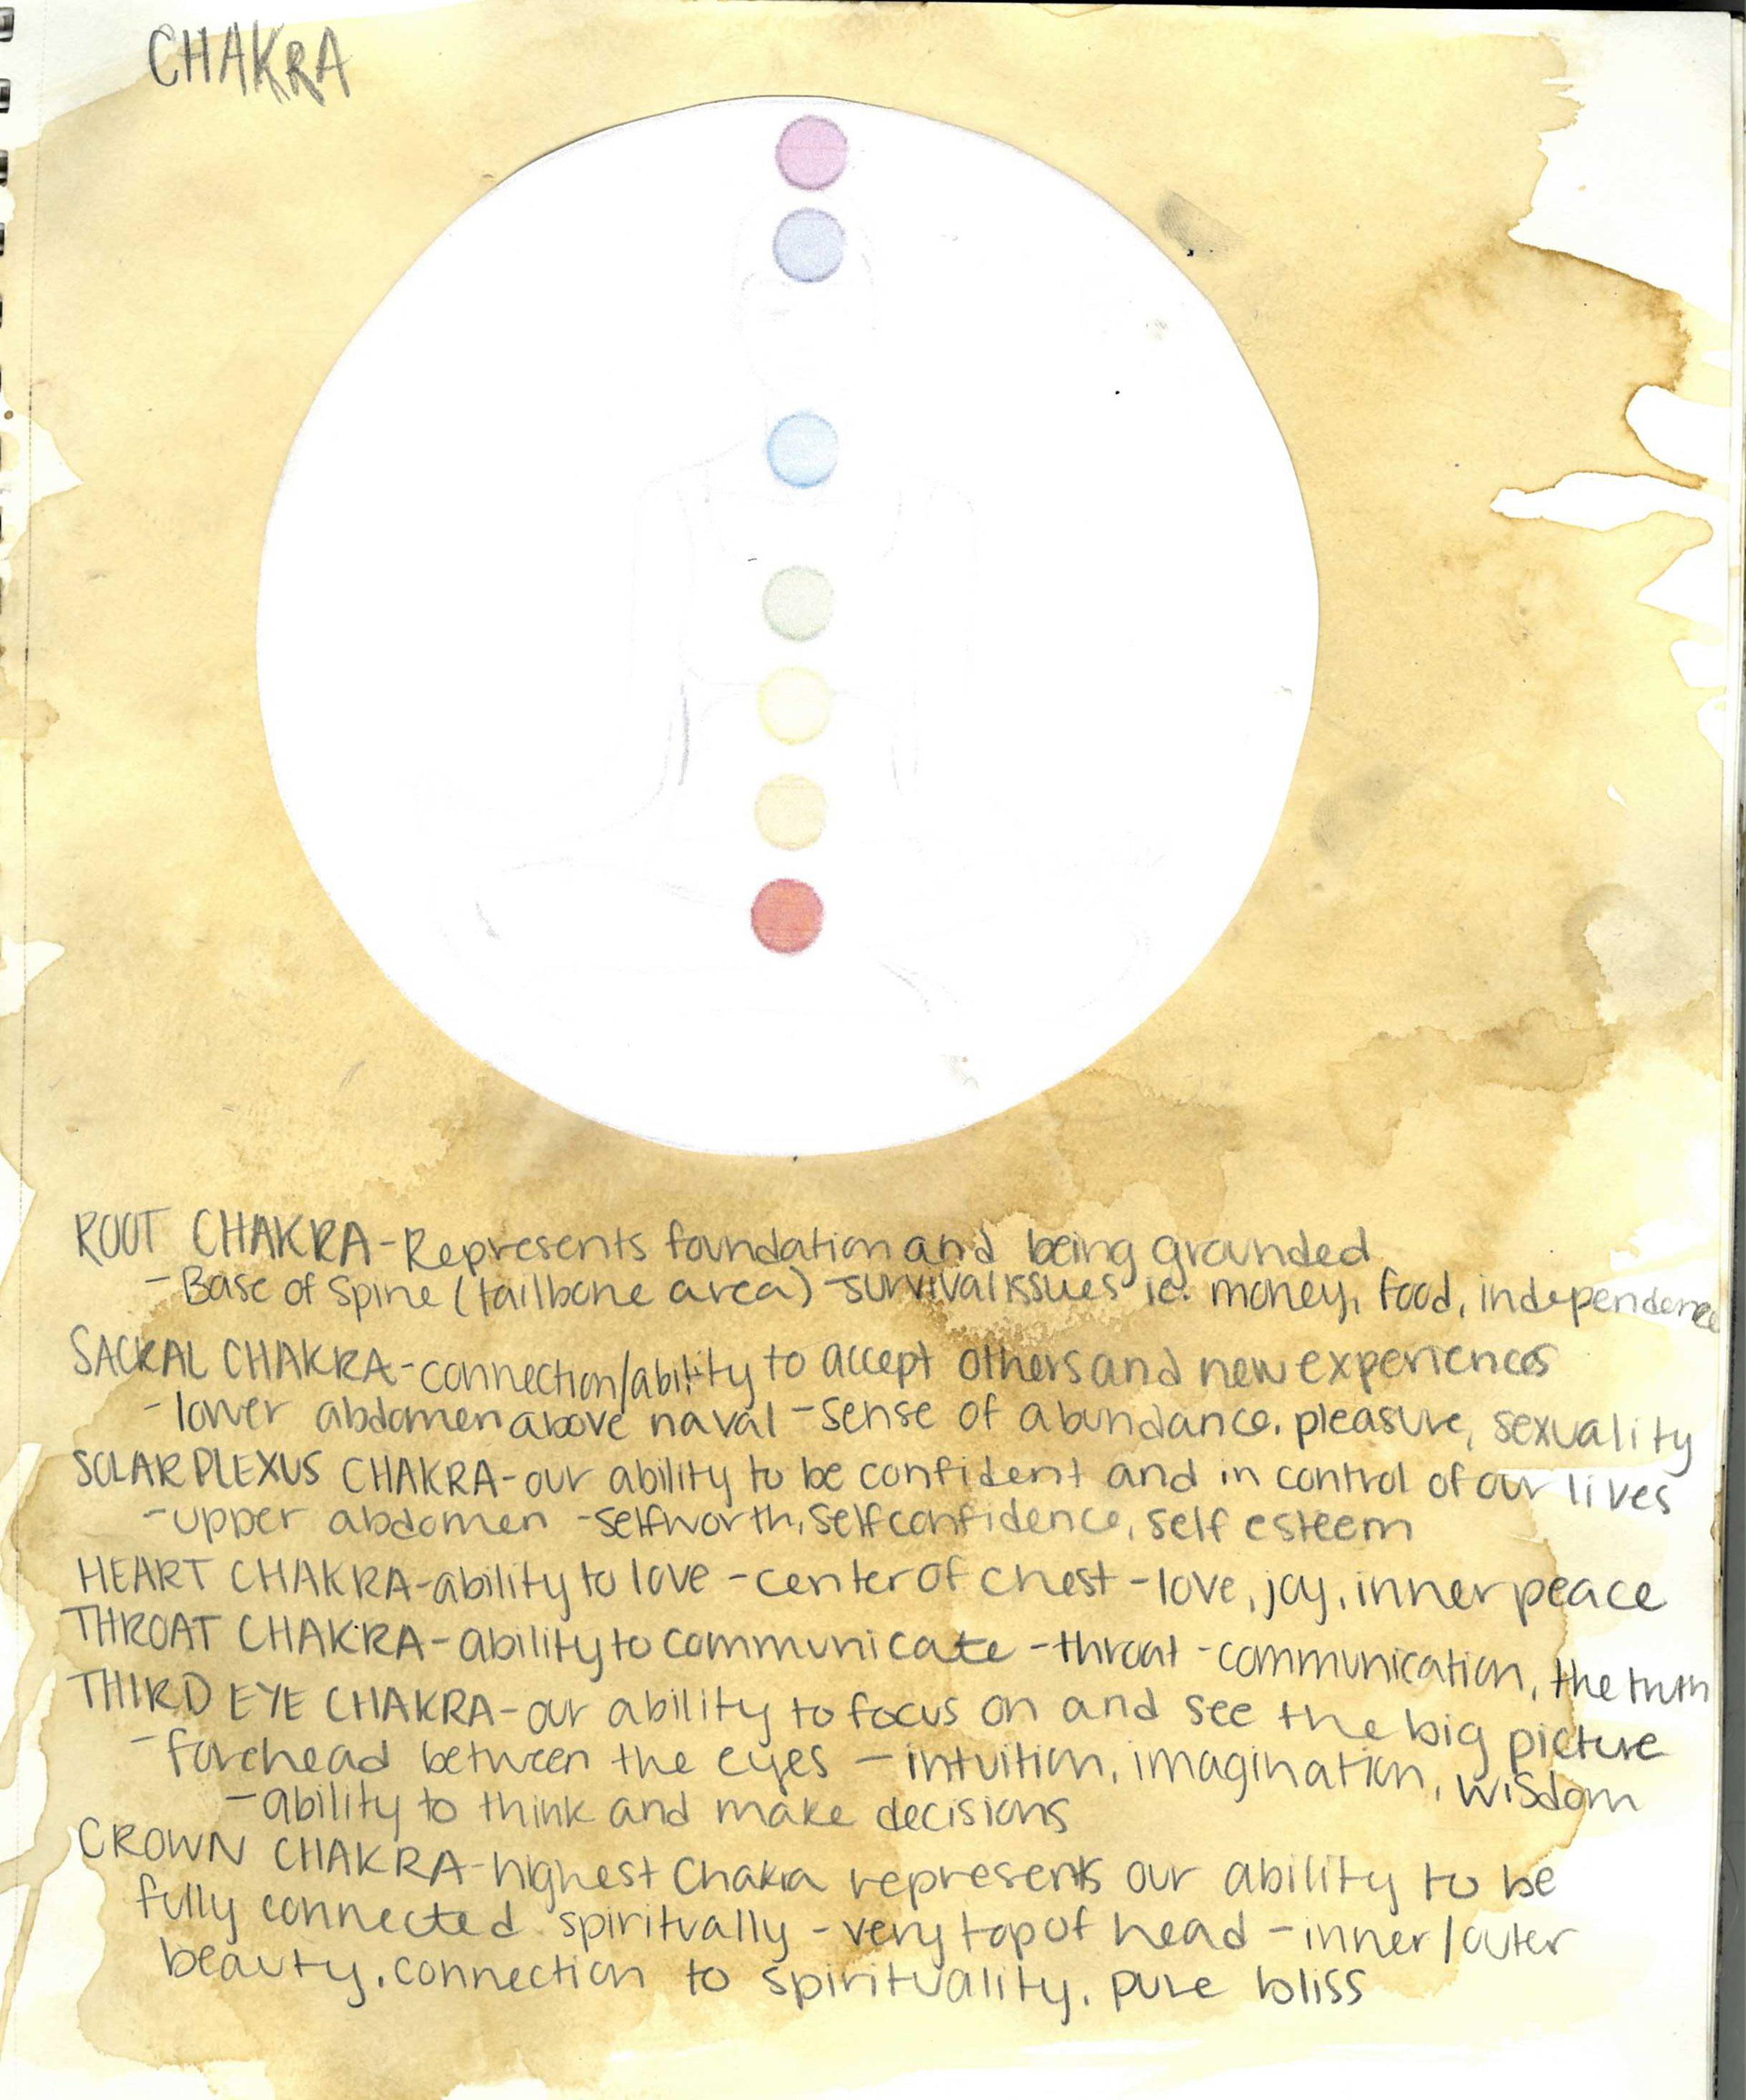 CHAKRA
ROOT CHAKRA - Represents foundation and being grounded
- Base of Spine (tailbone area) - survival issues ie. money, food, independence
SACKRAL CHAKRA - connection/ability to accept others and new experiences
- lower abdomen above naval - sense of abundance, pleasure, sexuality
SOLAR PLEXUS CHAKRA - our ability to be confident and in control of our lives
- upper abdomen - self worth, self confidence, self esteem
HEART CHAKRA - ability to love - center of chest - love, joy, inner peace
THROAT CHAKRA - ability to communicate - throat - communication, the truth
THIRD EYE CHAKRA - our ability to focus on and see the big picture
- forehead between the eyes - intuition, imagination, wisdom
- ability to think and make decisions
CROWN CHAKRA - highest Chakra represents our ability to be
fully connected spiritually - very top of head - inner/outer
beauty, connection to spirituality, pure bliss